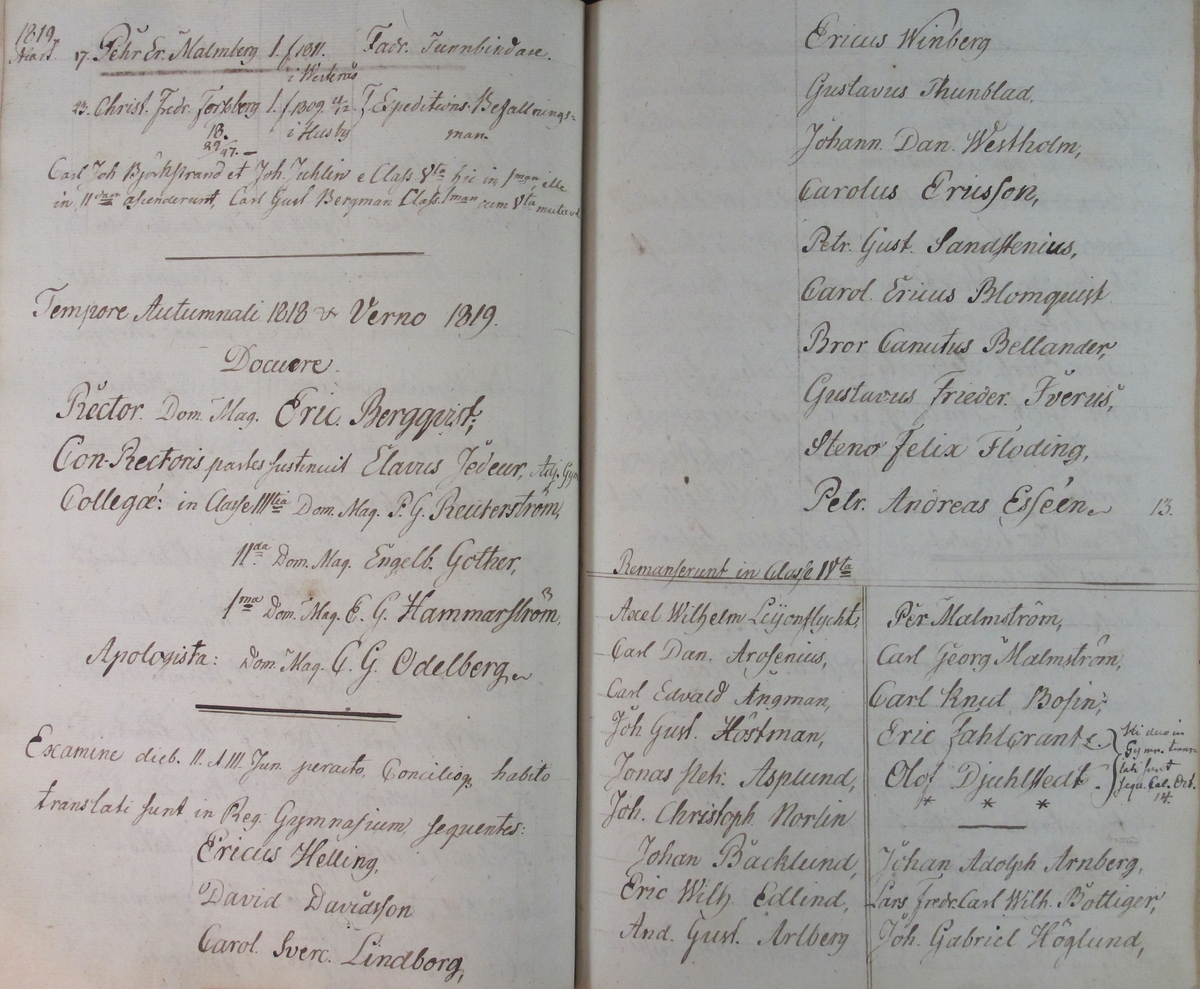 1819
Mart. 17. Pehr Er. Malmberg 1. f 1811. Fadr. Tunnbindare.
i Westerås
23. Christ. Fredr. Forsberg 1. f 1809 i Expeditions-Befallnings-
18. i Husby man.
Carl Joh Björkstrand et Joh. Juhlin e Class. Vta hic in Iman, ille
in IIdam ascenderunt, Carl Gust Bergman Class. Iman cum Vta mutavit
Tempore Autumnali 1818 & Verno 1819.
Docuere.
Rector. Dom. Mag. Eric. Bergqvist;
Con-Rectoris partes sustinuit Elavus Tedeur, Adj. Gym
Collegæ: in Classe IIItia Dom. Mag. P. G. Reuterström,
IIda Dom. Mag. Engelb. Gother,
Ima Dom. Mag. C. G. Hammarström,
Apologista: Dom. Mag. C. G. Odelberg.
Examine dieb. II. & III. Jun. peracto, Concilioq. habito
translati sunt in Reg. Gymnasium sequentes:
Ericus Helling,
David Davidsson
Carol. Sverc. Lindborg,
Ericus Winberg
Gustavus Thunblad.
Johann. Dan. Westholm,
Carolus Ericsson,
Petr. Gust. Sandstenius,
Carol. Ericus Blomquist
Bror Canutus Bellander,
Gustavus Frieder. Iverus,
Steno Felix Floding,
Petr. Andreas Esséen. 13.
Remanserunt in Classe IVta
Axel Wilhelm Leijonflycht,
Carl Dan. Arosenius,
Carl Edvald Ångman,
Joh Gust. Höstman,
Jonas Petr. Asplund,
Joh. Christoph. Norlin
Johan Bäcklund,
Eric Wilh. Edlind,
And. Gust. Arlberg
Pér Malmström,
Carl Georg Malmström,
Carl Knut Bosin,
Eric Fahlcrantz.
Olof Djuhlstedt.
Hi duo in
Gymn. trans-
lati sunt
sequ. Cal. Oct.
14.
* * *
Johan Adolph Arnberg,
Lars Fredr Carl Wilh. Böttiger,
Joh. Gabriel Höglund,